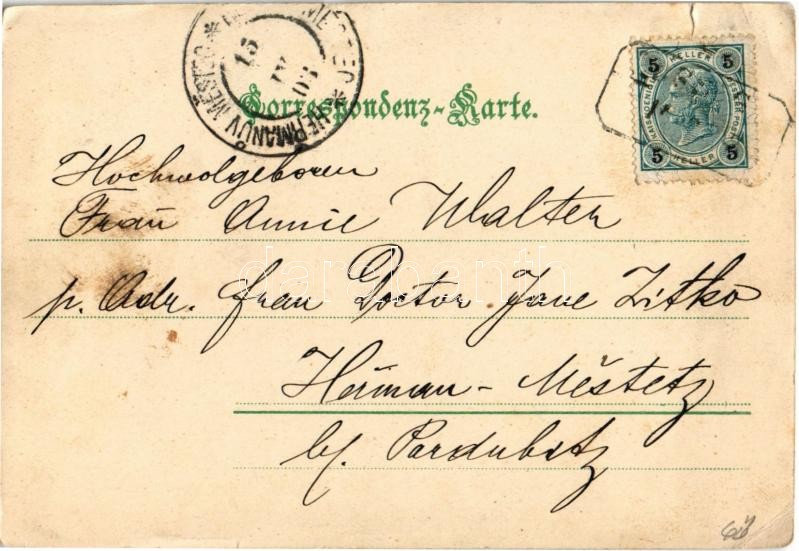 HEŘMANŮV MĚSTEC
15
IV
03
Correspondenz-Karte.
5 HELLER 5
5 HELLER 5
Hochwolgeboren
Frau Annie Walter
p. Adr. Frau Doctor Jane Zitko
Heřman-Městetz
b/. Pardubitz
darabanth